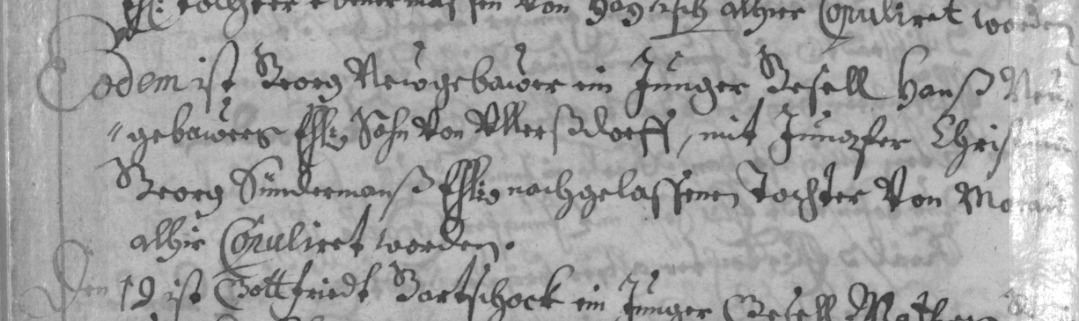 Ehl: tochter ebenermassen von alhier Copuliret worden
Eodem ist Georg Neugebawer ein Junger Gesell Hanß Neu
"gebawers Ehl: Sohn von Ullerßdorff, mit Jungfer Chris
Georg Sündermanß Ehl: nachgelassenen Tochter von Mo
alhir Copuliret worden.
Den 19 ist Gottfriedt Bartschock ein Junger Gesell Mathes